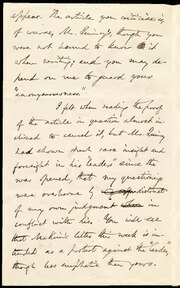 appears. The article you criticise is,
of course, Mr. Quincy's, though you
were not bound to know it
when writing; and you may de-
pend on me to guard your
"anonymousness."
I felt when reading the proof
of the article in question almost in-
clined to cancel it, but Mr. Quincy
had shown such rare insight and
foresight in his "leaders" since the
war opened that my questioning
was overborne by distrust
of my own judgment when in
conflict with his. You will see
that McKim's letter this week is in-
tended as a protest against the "leader,"
though less emphatic than yours.